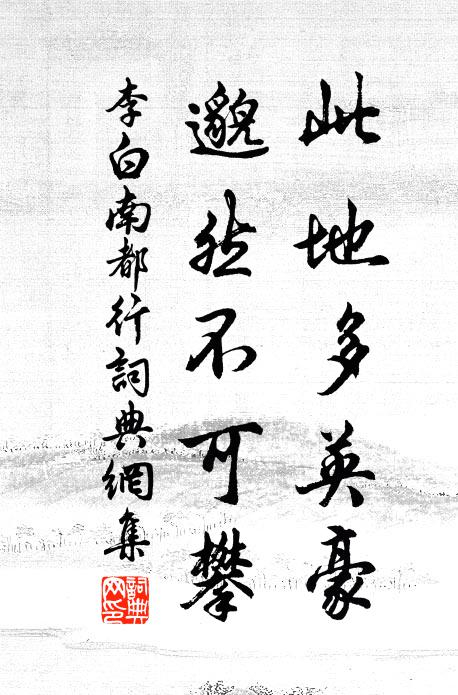 此地多英豪
邈然不可攀
李白南都行詞典網集
詞典網印